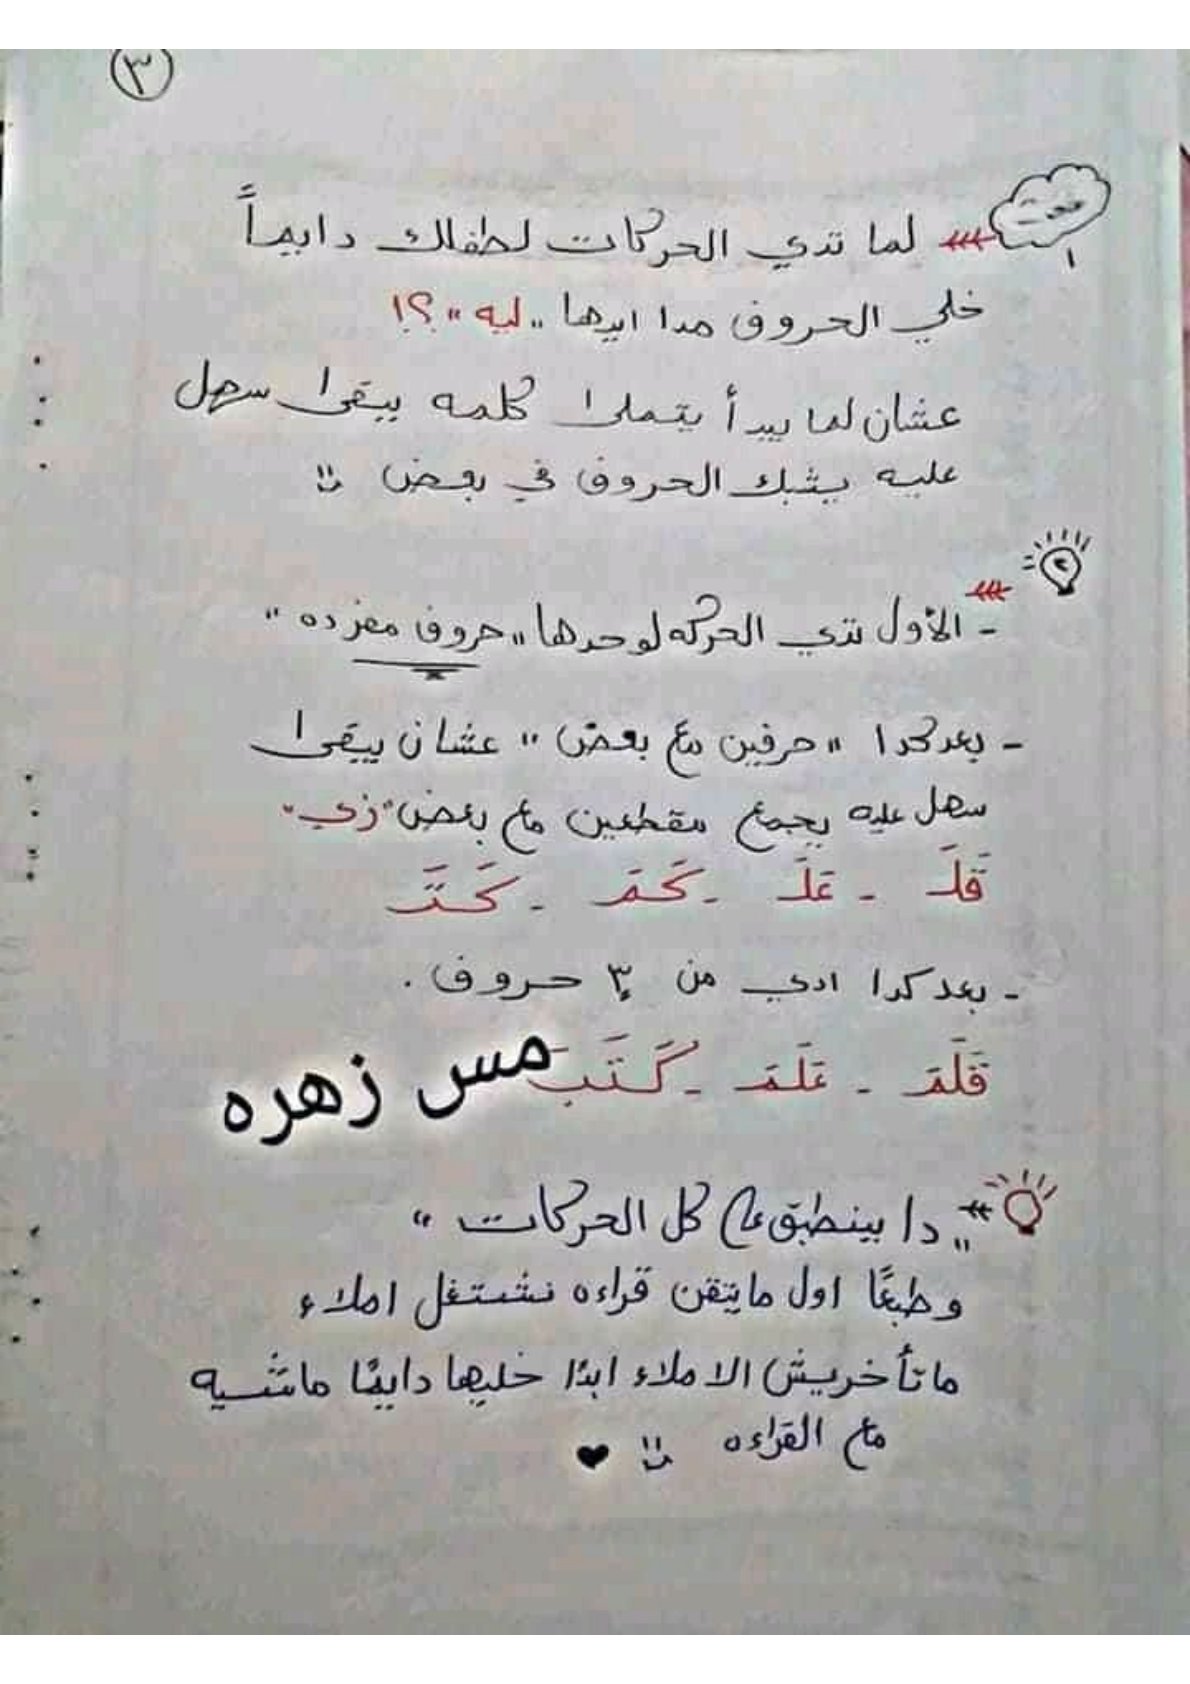 ٣
لما تدي الحركات لطفلك دايماً
١
خلي الحروف مدا ايدها "ليه"؟!
عشان لما يبدأ يتملى كلمه يبقى سهل
عليه يشبك الحروف في بعض
٢
- الأول تدي الحركه لوحدها "حروف مفرده"
- بعد كدا "حرفين مع بعض" عشان يبقى
سهل عليه يجمع مقطعين مع بعض "زي"
قَلَـ - عَلَـ - كَمَـ - كَتَـ
- بعد كدا ادي من ٣ حروف .
قَلَمَ - عَلَمَ - كَتَبَ
مس زهره
"دا بينطبق على كل الحركات"
وطبعًا اول مايتقن قراءه نشتغل املاء
ماتأخريش الاملاء ابدًا خليها دايمًا ماشيه
مع القراءه